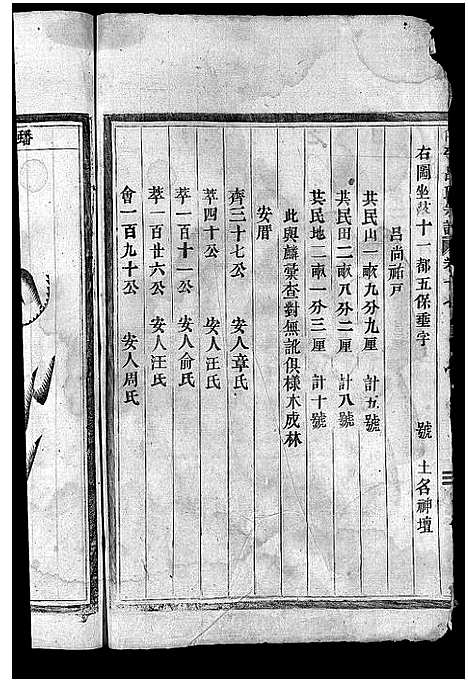 右圖坐落十一都五保垂字 號 土名神壇
呂尚祐戶
共民山一畝九分九厘 計五號
共民田二畝八分二厘 計八號
共民地二畝一分三厘 計十號
此與麟彙查對無訛俱樣木成林
安厝
齊三十七公 安人章氏
萃四十公 安人汪氏
萃一百十一公 安人俞氏
萃一百廿六公 安人汪氏
會一百九十公 安人周氏